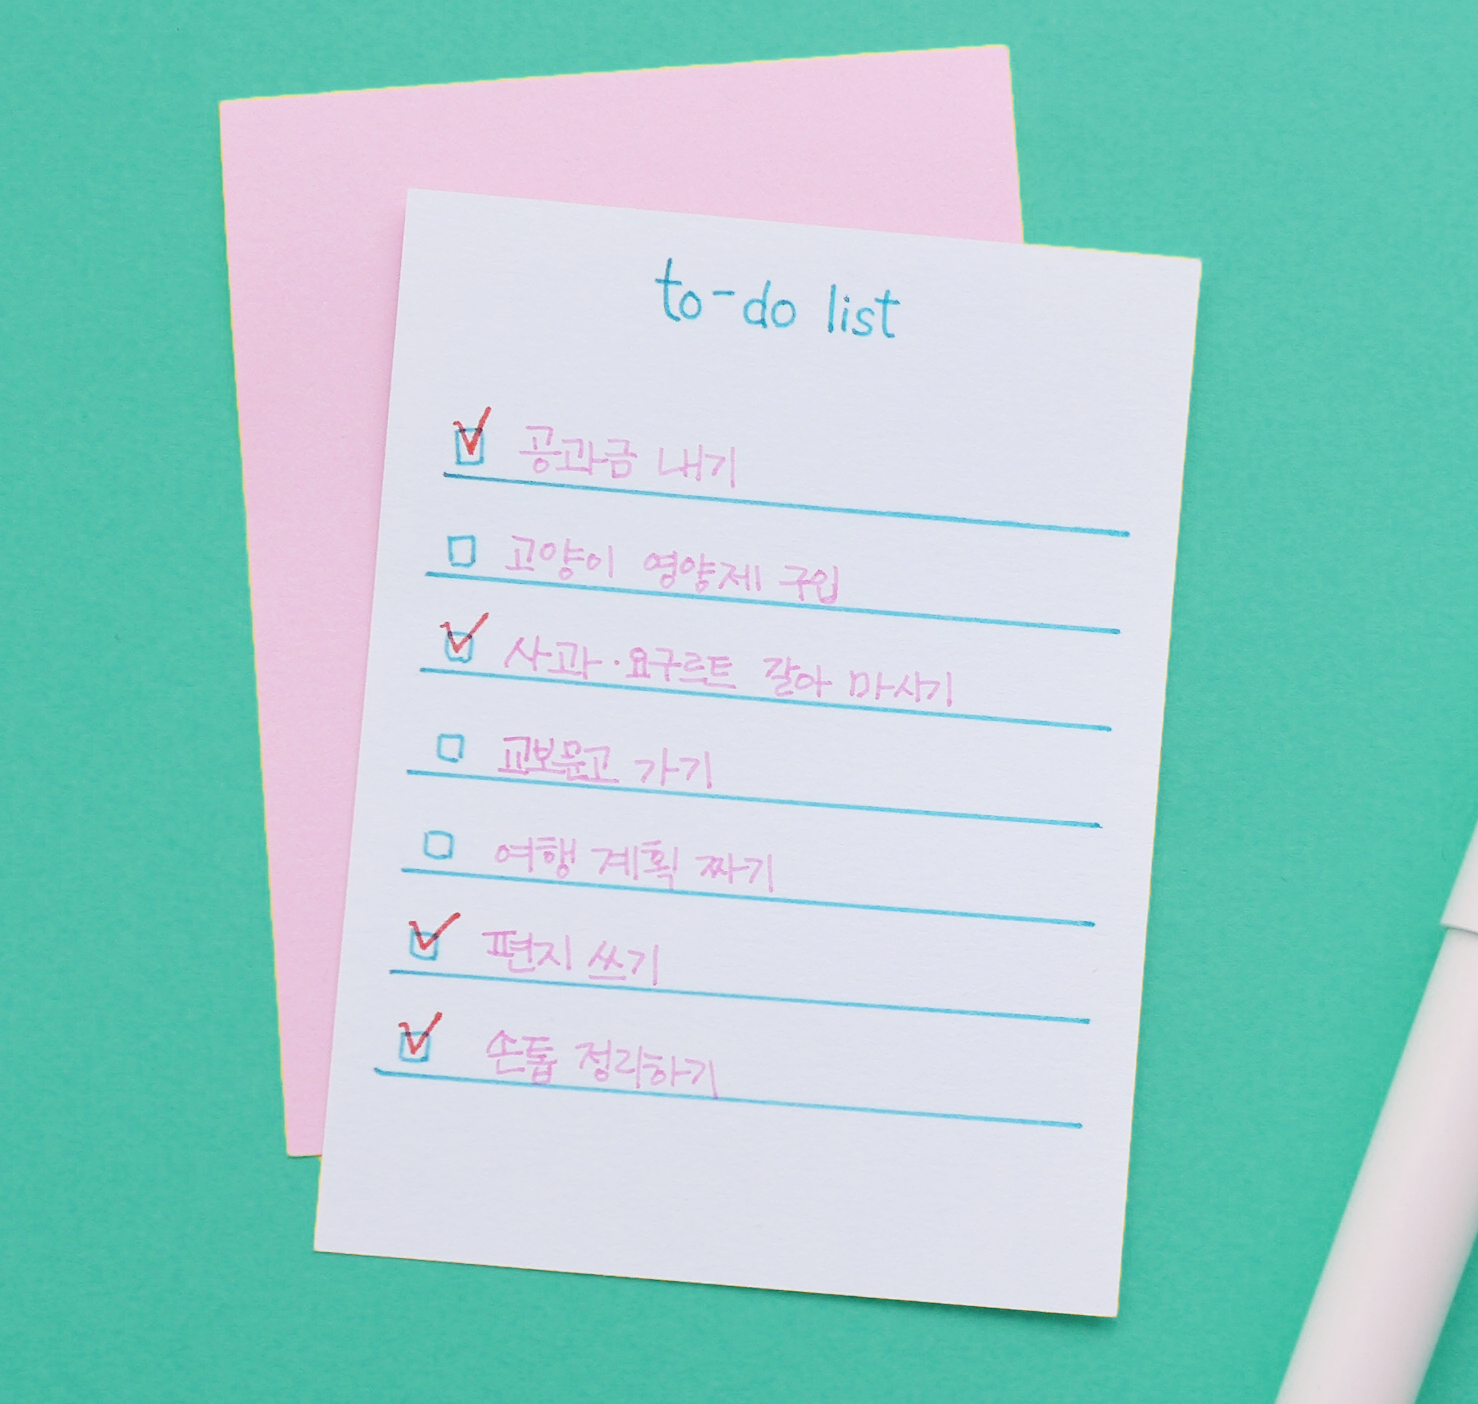 to-do list
공과금 내기
고양이 영양제 구입
사과·요구르트 갈아 마시기
교보문고 가기
여행 계획 짜기
편지 쓰기
손톱 정리하기